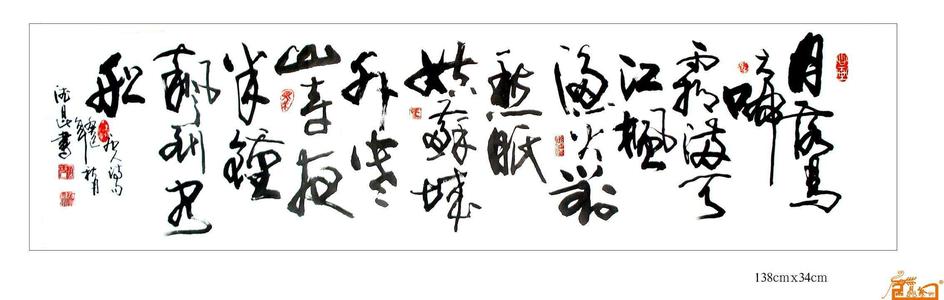 月落烏
啼
霜滿天
江楓
漁火對
愁眠
姑蘇城
外寒
山寺夜
半鐘
聲到客
船
秋月
書
138cmx34cm